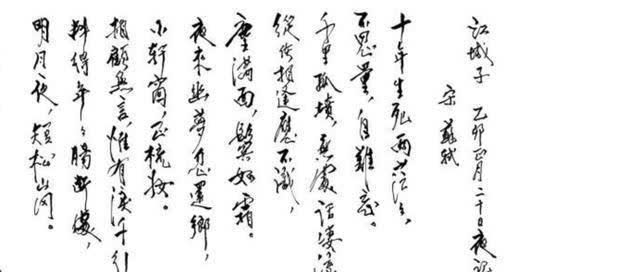 江城子 乙卯正月二十日夜記
宋 蘇軾
十年生死兩茫々,
不思量,自難忘。
千里孤墳,無處話淒涼
縱使相逢應不識,
塵滿面,鬢如霜。
夜來幽夢忽還鄉,
小軒窗,正梳妝。
相顧無言,惟有淚千行
料得年々腸斷處,
明月夜,短松岡。